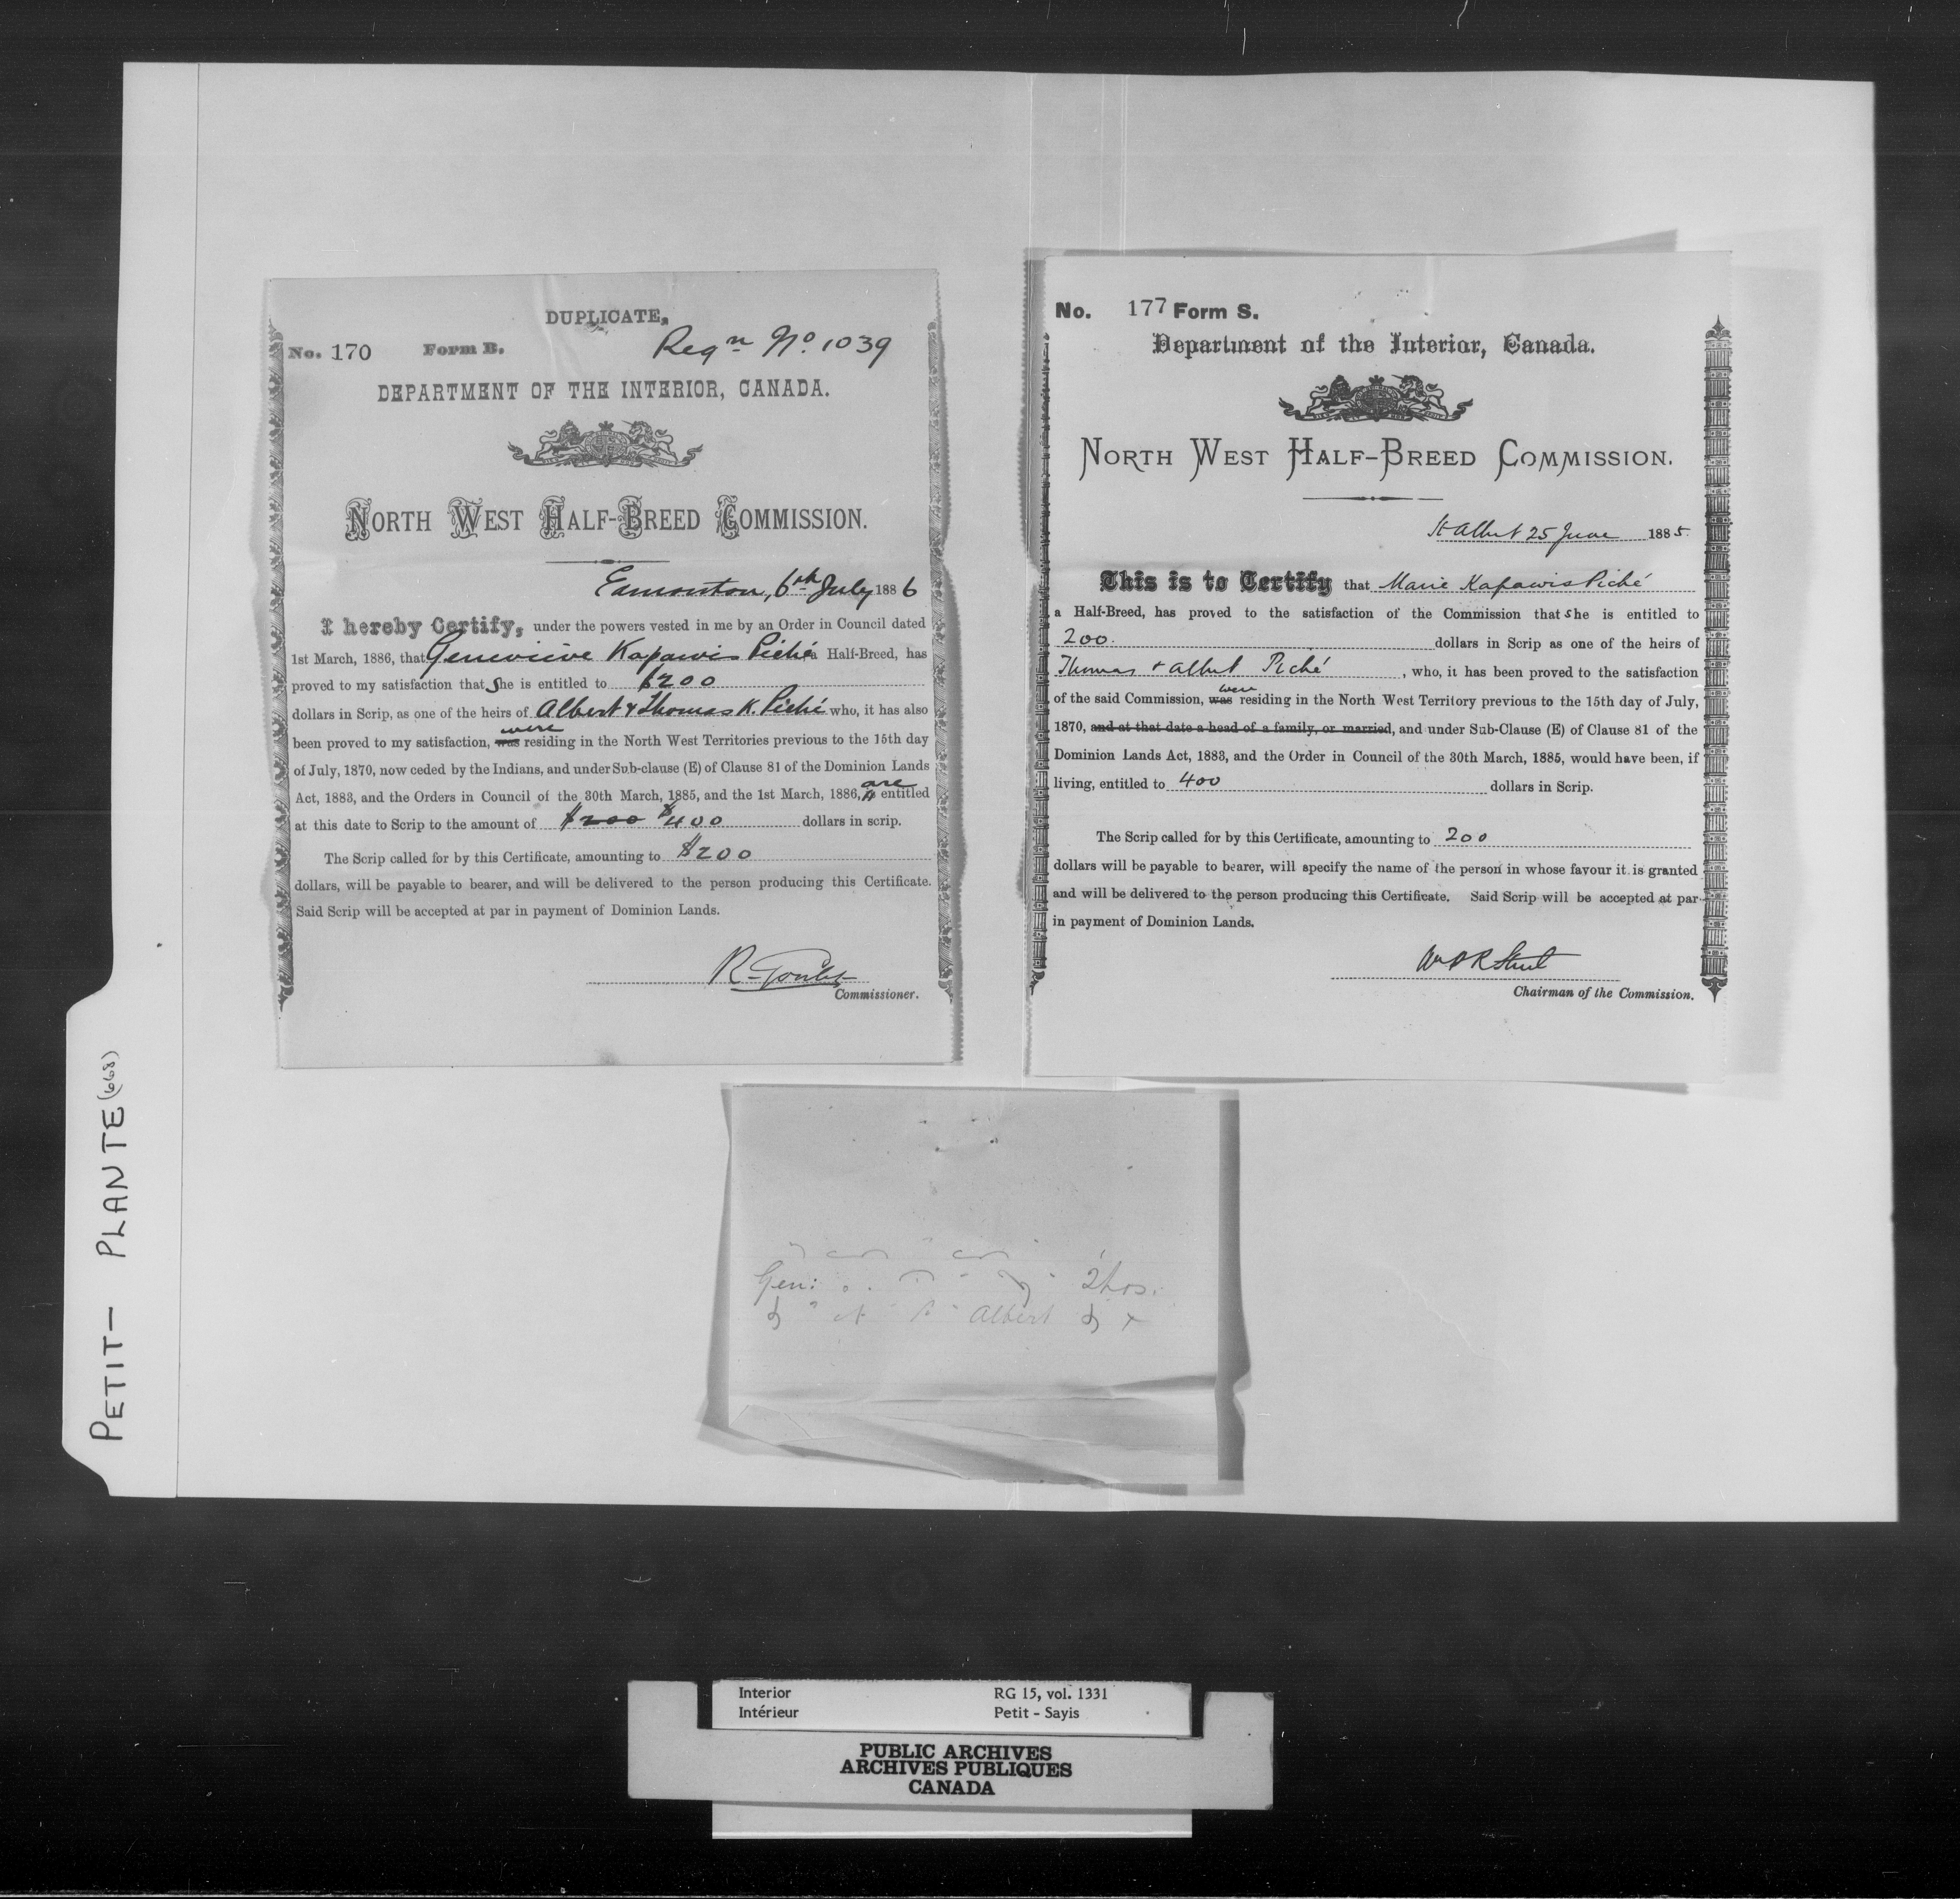 DUPLICATE,
No. 170 Form B. Regn No. 1039
DEPARTMENT OF THE INTERIOR, CANADA.
NORTH WEST HALF-BREED COMMISSION.
Edmonton, 6th July 1886
I hereby Certify, under the powers vested in me by an Order in Council dated
1st March, 1886, that Genevieve Kapawis Piché a Half-Breed, has
proved to my satisfaction that She is entitled to $200
dollars in Scrip, as one of the heirs of Albert & Thomas K. Piché who, it has also
been proved to my satisfaction, was were residing in the North West Territories previous to the 15th day
of July, 1870, now ceded by the Indians, and under Sub-clause (E) of Clause 81 of the Dominion Lands
Act, 1883, and the Orders in Council of the 30th March, 1885, and the 1st March, 1886, are entitled
at this date to Scrip to the amount of $200 $400 dollars in scrip.
The Scrip called for by this Certificate, amounting to $200
dollars, will be payable to bearer, and will be delivered to the person producing this Certificate.
Said Scrip will be accepted at par in payment of Dominion Lands.
R. Goulet
Commissioner.
No. 177 Form S.
Department of the Interior, Canada.
NORTH WEST HALF-BREED COMMISSION.
St Albert 25 June 1885.
This is to Certify that Marie Kapawis Piché
a Half-Breed, has proved to the satisfaction of the Commission that she is entitled to
200. dollars in Scrip as one of the heirs of
Thomas & Albert Piché, who, it has been proved to the satisfaction
of the said Commission, was were residing in the North West Territory previous to the 15th day of July,
1870, and at that date a head of a family, or married, and under Sub-Clause (E) of Clause 81 of the
Dominion Lands Act, 1883, and the Order in Council of the 30th March, 1885, would have been, if
living, entitled to 400 dollars in Scrip.
The Scrip called for by this Certificate, amounting to 200
dollars will be payable to bearer, will specify the name of the person in whose favour it is granted
and will be delivered to the person producing this Certificate. Said Scrip will be accepted at par
in payment of Dominion Lands.
Wm P R Street
Chairman of the Commission.
Gen:
Albert
PETIT - PLANTE (668)
Interior RG 15, vol. 1331
Intérieur Petit - Sayis
PUBLIC ARCHIVES
ARCHIVES PUBLIQUES
CANADA